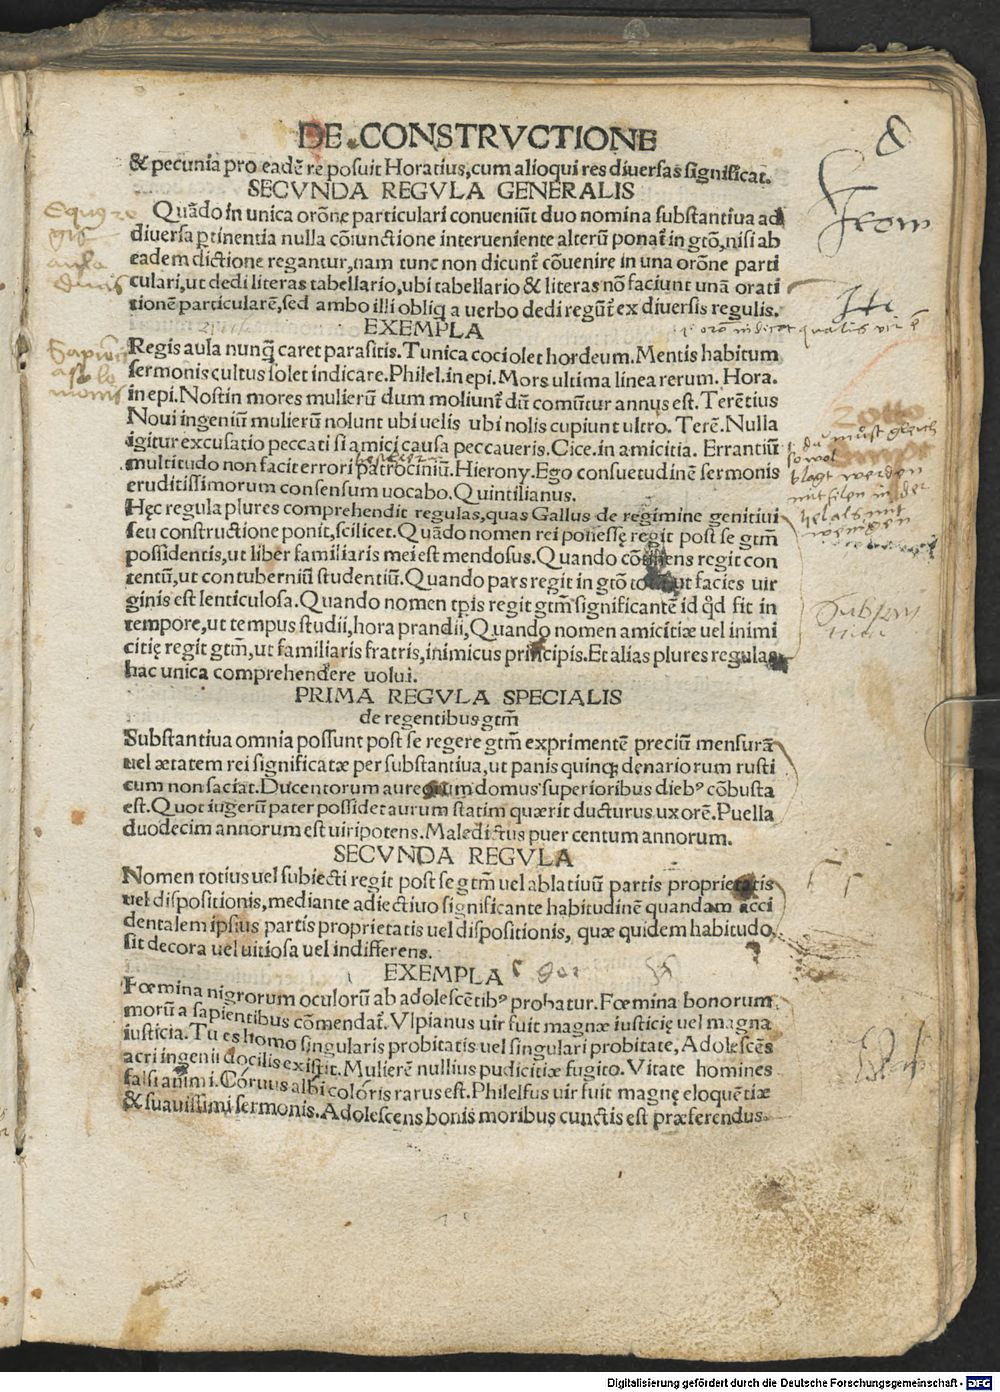 DE CONSTRVCTIONE
& pecunia pro eadē re posuit Horatius, cum alioqui res diuersas significat.
SECVNDA REGVLA GENERALIS
Quādo in unica orōne particulari conueniūt duo nomina substantiua ad
diuersa ꝑtinentia nulla cōiunctione interueniente alterū ponat̄ in gtō, nisi ab
eadem dictione regantur, nam tunc non dicunt̄ cōuenire in una orōne parti
culari, ut dedi literas tabellario, ubi tabellario & literas nō faciunt unā orati
tionē particularē, sed ambo illi obliq a uerbo dedi regūt̄ ex diuersis regulis.
EXEMPLA
Regis aula nunq̄ caret parasitis. Tunica cociolet hordeum. Mentis habitum
sermonis cultus solet indicare. Philel. in epi. Mors ultima linea rerum. Hora.
in epi. Nostin mores mulierū dum moliunt̄ dū comūtur annus est. Terētius
Noui ingeniū mulierū nolunt ubi uelis ubi nolis cupiunt ultro. Terē. Nulla
igitur excusatio peccati si amici causa peccaueris. Cice. in amicitia. Errantiū
multitudo non facit errori patrociniū. Hierony. Ego consuetudinē sermonis
eruditissimorum consensum uocabo. Quintilianus.
Hęc regula plures comprehendit regulas, quas Gallus de regimine genitiui
seu constructione ponit, scilicet. Quādo nomen rei possessę regit post se gtm̄
possidentis, ut liber familiaris mei est mendosus. Quando cōtinens regit con
tentū, ut contuberniū studentiū. Quando pars regit in gtō totū, ut facies uir
ginis est lenticulosa. Quando nomen tp̄is regit gtm̄ significantē id qd̄ fit in
tempore, ut tempus studii, hora prandii, Quando nomen amicitiæ uel inimi
citię regit gtm̄, ut familiaris fratris, inimicus principis. Et alias plures regulas
hac unica comprehendere uolui.
PRIMA REGVLA SPECIALIS
de regentibus gtm̄
Substantiua omnia possunt post se regere gtm̄ exprimentē preciū mensurā
uel ætatem rei significatæ per substantiua, ut panis quinqꝫ denariorum rusti
cum non saciat. Ducentorum aureorum domus superioribus diebꝰ cōbusta
est. Quot iugerū pater possidet aurum statim quærit ducturus uxorē. Puella
duodecim annorum est uiripotens. Maledictus puer centum annorum.
SECVNDA REGVLA
Nomen totius uel subiecti regit post se gtm̄ uel ablatiuū partis proprietatis
uel dispositionis, mediante adiectiuo significante habitudinē quandam acci
dentalem ipsius partis proprietatis uel dispositionis, quæ quidem habitudo,
sit decora uel uitiosa uel indifferens.
EXEMPLA
Fœmina nigrorum oculorū ab adolescētibꝰ probatur. Fœmina bonorum
morū a sapientibus cōmendat̄. Vlpianus uir fuit magnæ iusticię uel magna
iusticia. Tu es homo singularis probitatis uel singulari probitate, Adolescēs
acri ingenii docilis existit. Mulierē nullius pudicitiæ fugito. Vitate homines
falsi animi. Coruus albi coloris rarus est. Philelfus uir fuit magnę eloquētiæ
& suauissimi sermonis. Adolescens bonis moribus cunctis est præferendus.
Digitalisierung gefördert durch die Deutsche Forschungsgemeinschaft - DFG